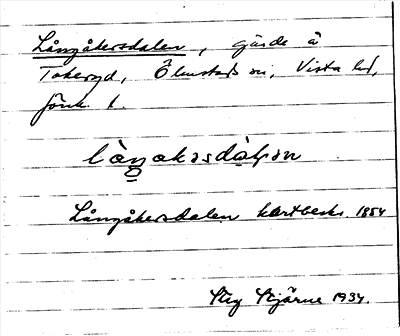 Långåkersdalen, gärde å
Takeryd, Ölmstads sn, Vista hd,
Jönk. l.
Långåkersdalen kartbeskr. 1854
Stig Stjärne 1934.